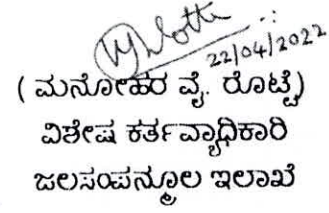 22/04/2022
(ಮನೋಹರ ವೈ. ರೊಟ್ಟಿ)
ವಿಶೇಷ ಕರ್ತವ್ಯಾಧಿಕಾರಿ
ಜಲಸಂಪನ್ಮೂಲ ಇಲಾಖೆ